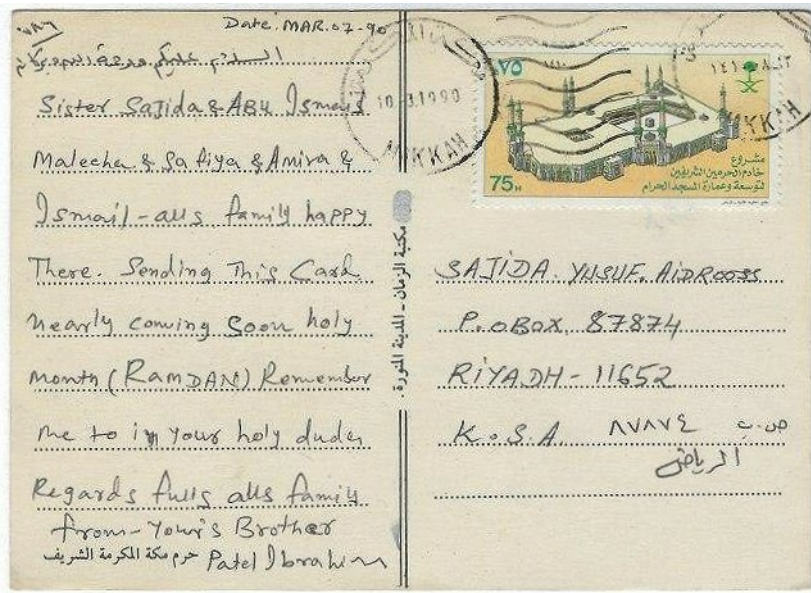 ٧٨٦
Date: MAR.07-90
السلام عليكم ورحمة الله وبركاته
Sister Sajida & Abu Ismail
Maleeha & Safiya & Amira &
Ismail - alls family happy
There. Sending This Card
nearly coming soon holy
month (RAMDAN) Remember
me to in your holy
Regards fulls alls family
from - Your's Brother
Patel Ibrahim
حرم مكة المكرمة الشريف
مكتبة الزمان - المدينة المنورة
10.3.1990
MAKKAH
٧٥
75H
مشروع
خادم الحرمين الشريفين
لتوسعة وعمارة المسجد الحرام
MAKKAH
SAJIDA. YUSUF. AIDROOSS
P.OBOX. 87874
RIYADH - 11652
K.S.A. ص.ب ٨٧٨٧٤
الرياض